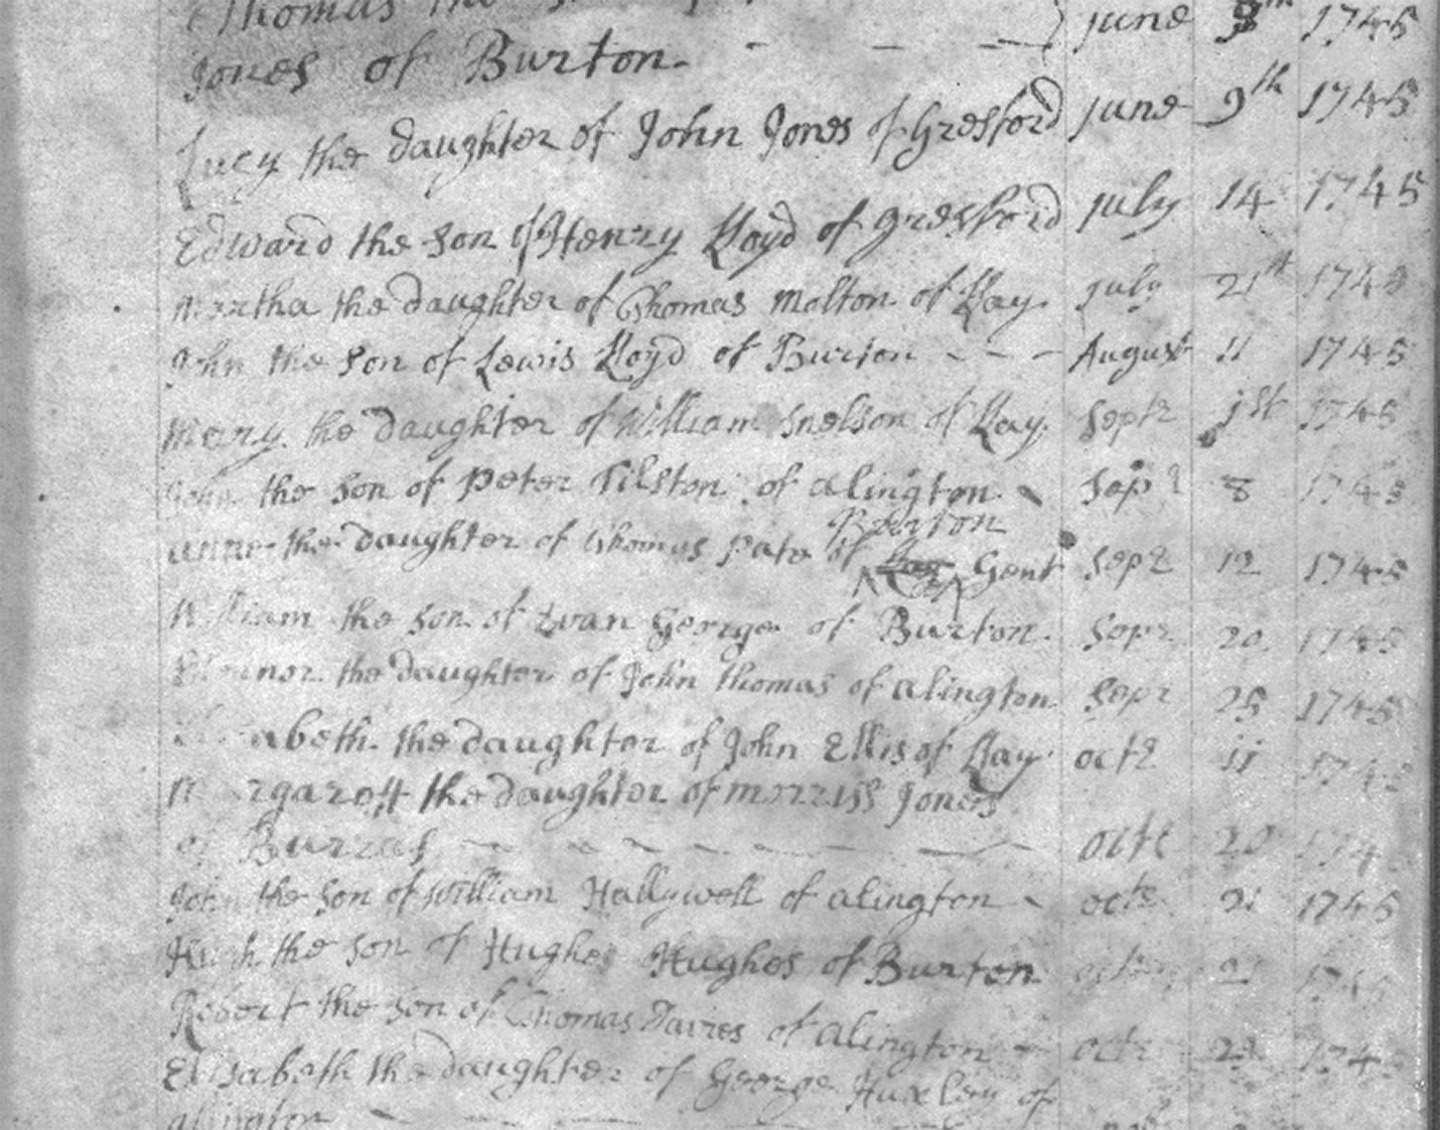 Thomas the june 8th 1745
Jones of Burton - - -
Lucy the daughter of John Jones of Gresford june 9th 1745
Edward the son of Henry Lloyd of gresford july 14 1745
Martha the daughter of Thomas Molton of Llay. july 21st 1745
John the son of Lewis Lloyd of Burton - - - August 11 1745
Mary the daughter of William Snelson of Llay. Septr 1st 1745
John the son of Peter Tilston of alington Sepr 8 1745
Burton
anne the daughter of Thomas Pate of Gent Sepr 12 1745
William the son of Evan George of Burton. Sepr 20 1745
Eleanor the daughter of John Thomas of alington Sepr 25 1745
abeth the daughter of John Ellis of Llay octr 11 1745
Margarett the daughter of morriss Jones
of Burras - - - - - octr 20 174
John the son of William Hallywell of alington - octr 21 1745
Hugh the son of Hughes Hughes of Burton 1745
Robert the son of Thomas Davies of alington - octr 1745
Elisabeth the daughter of George Huxley of
alington - - -